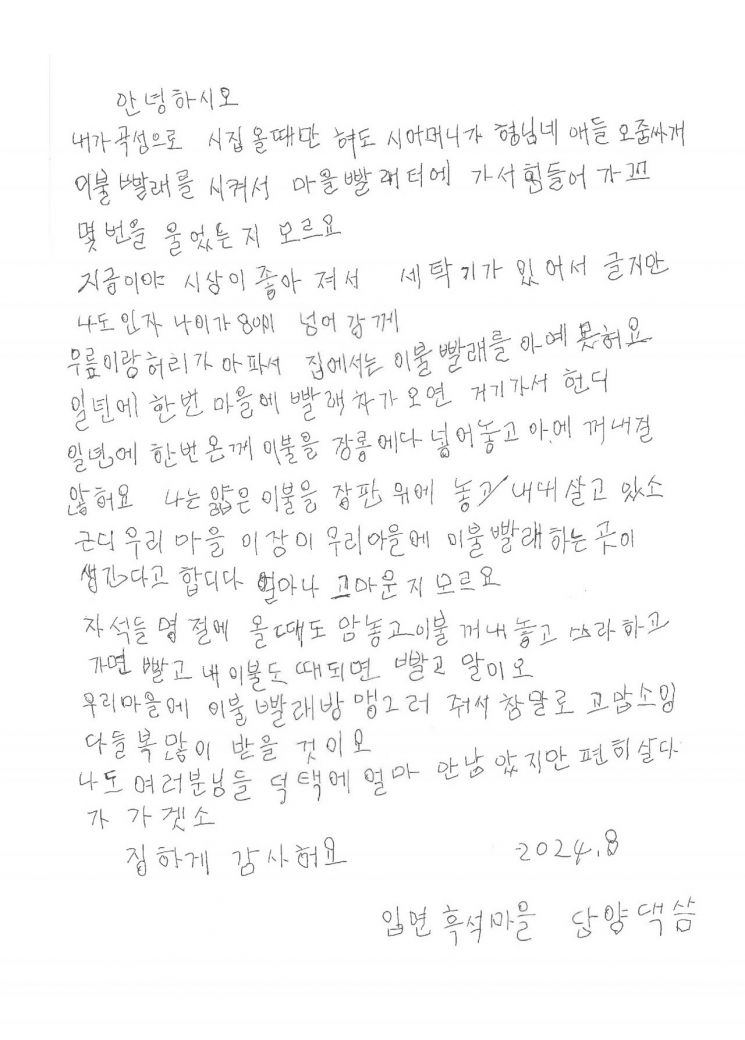 안녕하시오
내가 곡성으로 시집 올때만 혀도 시어머니가 형님네 애들 오줌싸개
이불 빨래를 시켜서 마을 빨래터에 가서 힘들어가꼬
몇번을 울었는지 모르요
지금이야 시상이 좋아 져서 세탁기가 있어서 글지만
나도 인자 나이가 80이 넘어 갑께
무릎이랑 허리가 아파서 집에서는 이불빨래를 아예 못혀요
일년에 한번 마을에 빨래차가 오면 거기가서 헌디
일년에 한번 온께 이불을 장롱에다 넣어놓고 아에 꺼내질
않혀요 나는 얇은 이불을 장판 위에 놓고 내내 살고 있소
근디 우리 마을 이장이 우리마을에 이불빨래하는 곳이
생긴다고 합디다 얼마나 고마운지 모르요
자석들 명절에 올때도 암놓고 이불 꺼내놓고 쓰라하고
가면 빨고 내 이불도 때되면 빨고 말이오
우리마을에 이불 빨래방 맹그러 줘서 참말로 고맙소잉
다들 복많이 받을 것이오
나도 여러분님들 덕택에 얼마 안남았지만 편히살다
가 가겟소
집하게 감사혀요 2024.8
입면 흑석마을 담양댁 삼